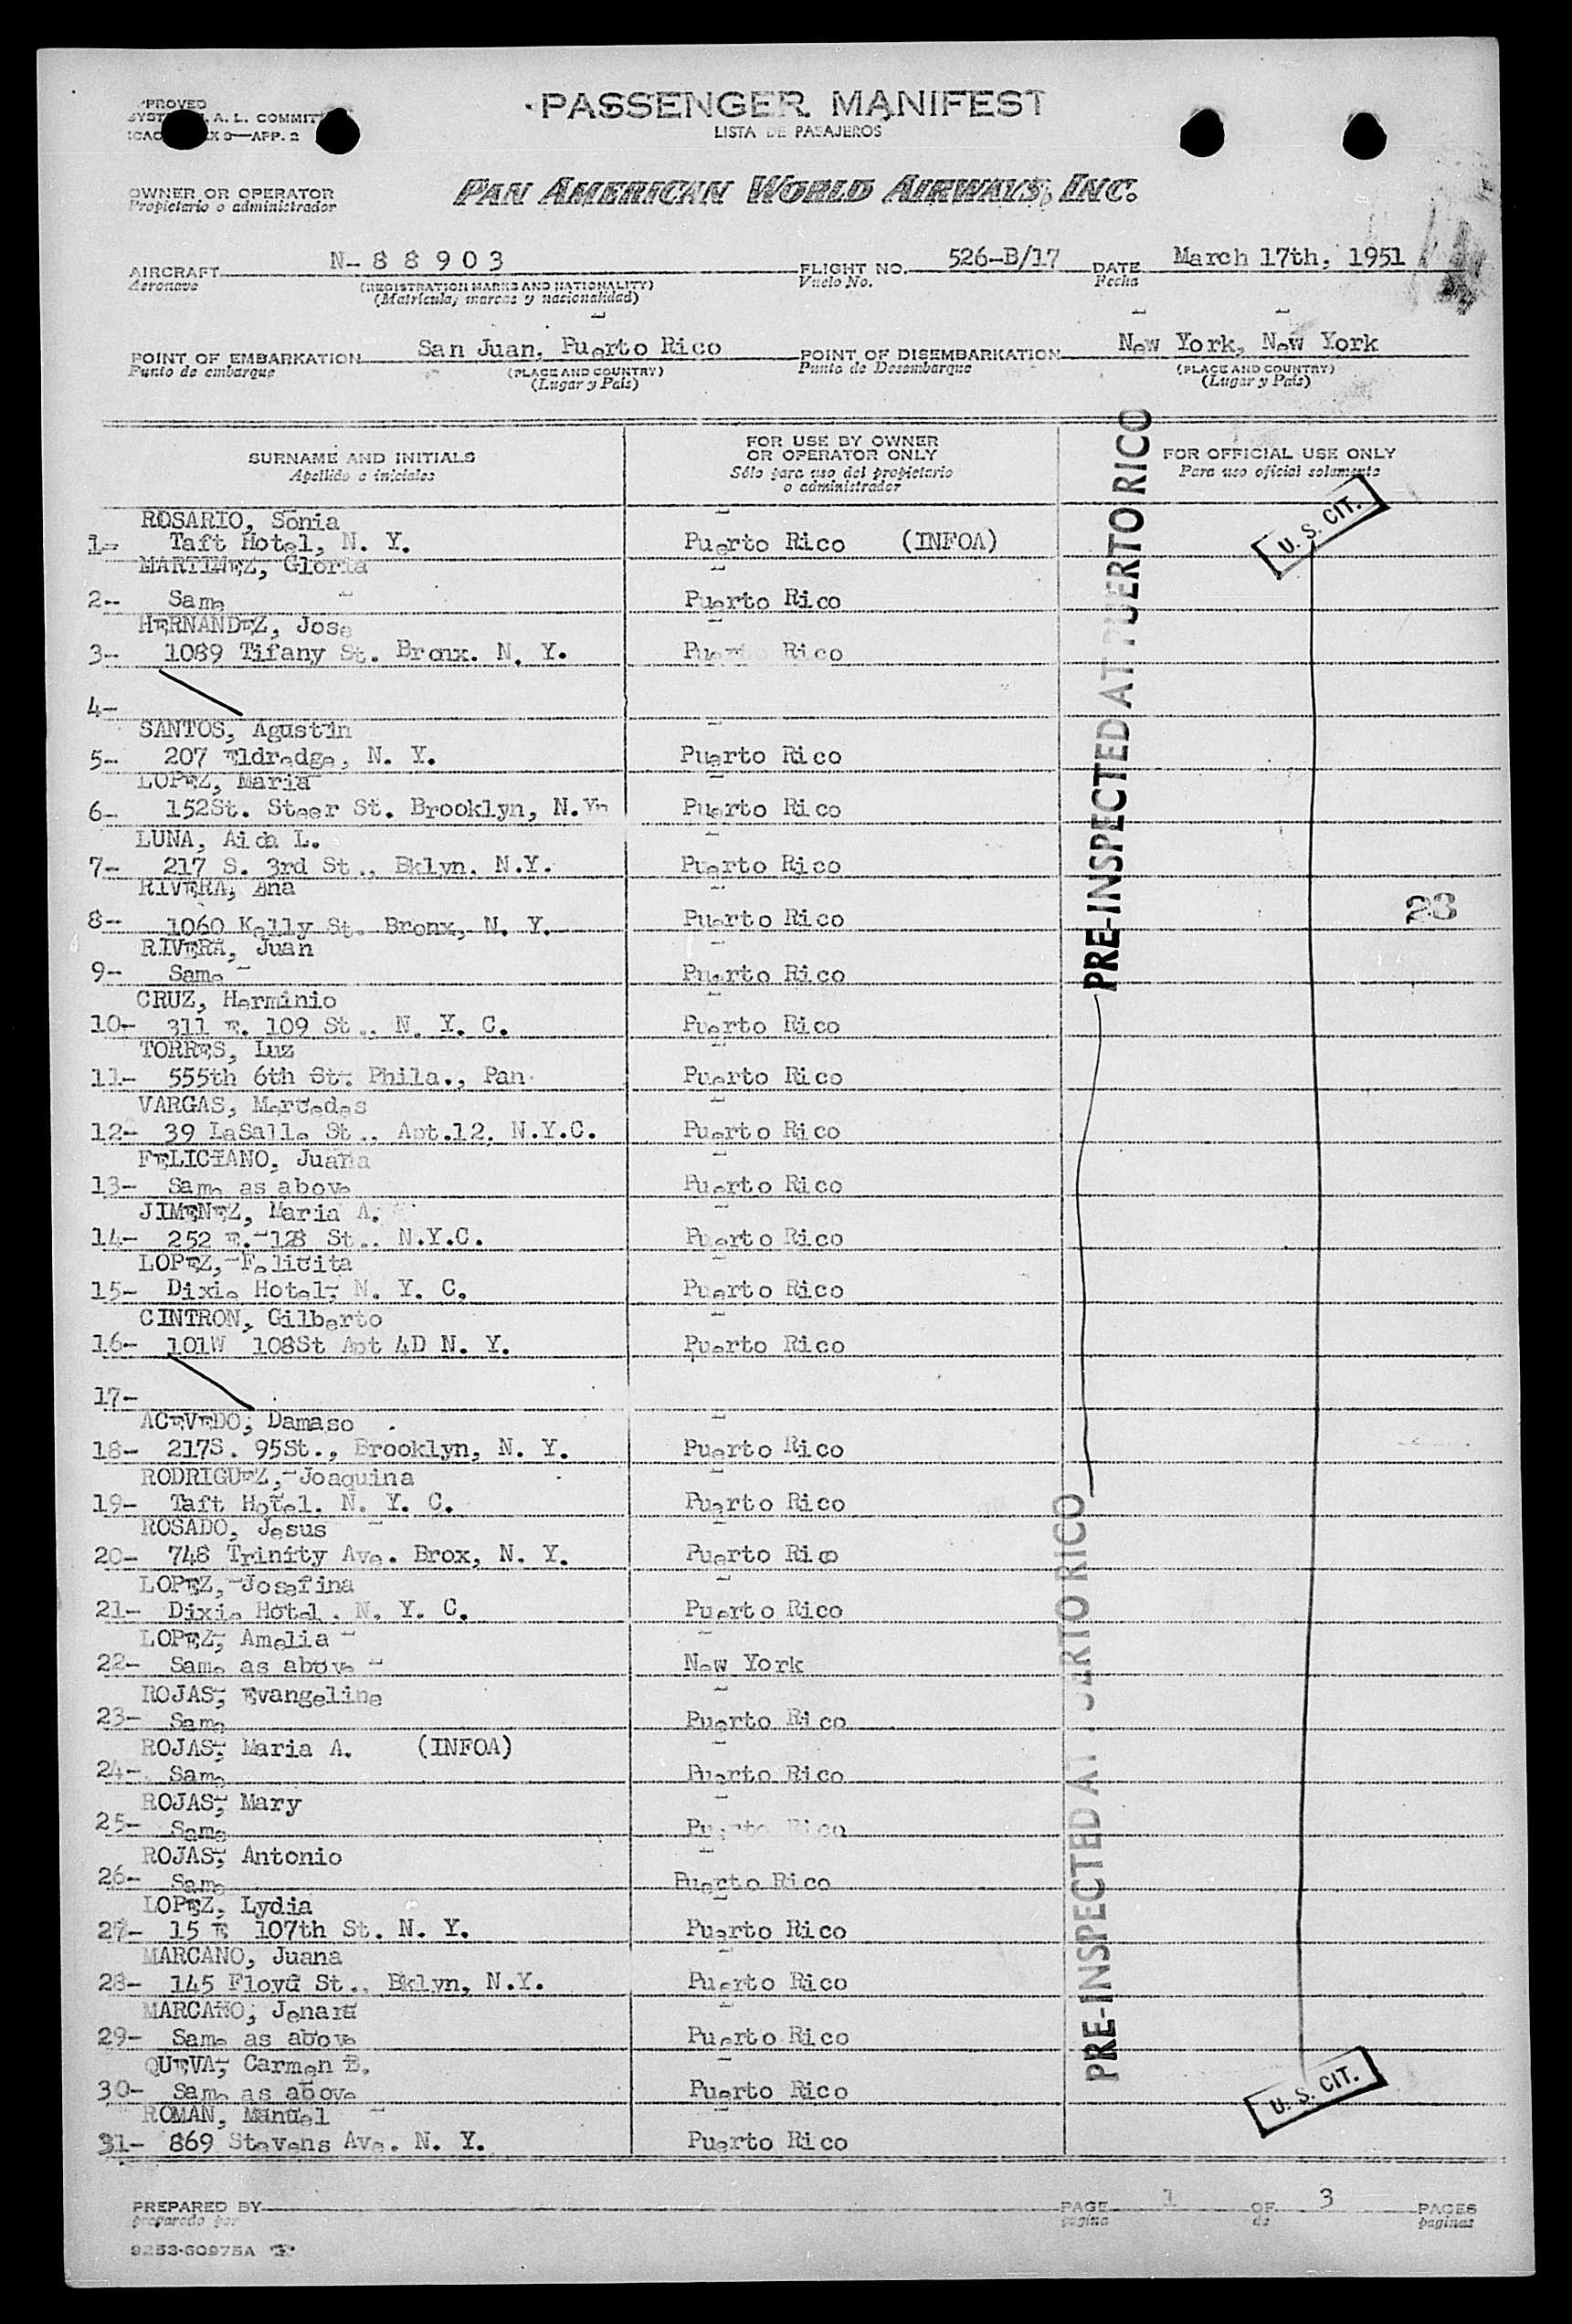 PROVED
SYST A. L. COMMIT
ICAO X 9—APP. 2
PASSENGER MANIFEST
LISTA DE PASAJEROS
OWNER OR OPERATOR
Propietario o administrador
PAN AMERICAN WORLD AIRWAYS, INC.
AIRCRAFT N-88903 FLIGHT NO. 526-B/17 DATE March 17th, 1951
Aeronave (REGISTRATION MARKS AND NATIONALITY) Vuelo No. Fecha
(Matrícula, marcas y nacionalidad)
POINT OF EMBARKATION San Juan, Puerto Rico POINT OF DISEMBARKATION New York, New York
Punto de embarque (PLACE AND COUNTRY) Punto de Desembarque (PLACE AND COUNTRY)
(Lugar y País) (Lugar y País)
SURNAME AND INITIALS
Apellido e iniciales
FOR USE BY OWNER
OR OPERATOR ONLY
Sólo para uso del propietario
o administrador
FOR OFFICIAL USE ONLY
Para uso oficial solamente
U. S. CIT.
PRE-INSPECTED AT PUERTO RICO
ROSARIO, Sonia
1- Taft Hotel, N. Y. Puerto Rico (INFOA)
MARTINEZ, Gloria
2- Same Puerto Rico
HERNANDEZ, Jose
3- 1089 Tifany St. Bronx. N. Y. Puerto Rico
4-
SANTOS, Agustin
5- 207 Eldredge, N. Y. Puerto Rico
LOPEZ, Maria
6- 152St. Steer St. Brooklyn, N.Y. Puerto Rico
LUNA, Aida L.
7- 217 S. 3rd St., Bklyn. N.Y. Puerto Rico
RIVERA, Ana
8- 1060 Kelly St. Bronx, N. Y. Puerto Rico 23
RIVERA, Juan
9- Same Puerto Rico
CRUZ, Herminio
10- 311 E. 109 St., N. Y. C. Puerto Rico
TORRES, Luz
11- 555th 6th St. Phila., Pan. Puerto Rico
VARGAS, Mercedes
12- 39 LaSalle St., Apt.12, N.Y.C. Puerto Rico
FELICIANO, Juana
13- Same as above Puerto Rico
JIMENEZ, Maria A.
14- 252 E. 128 St., N.Y.C. Puerto Rico
LOPEZ, Felicita
15- Dixie Hotel, N. Y. C. Puerto Rico
CINTRON, Gilberto
16- 101W 108St Apt 4D N. Y. Puerto Rico
17-
ACEVEDO, Damaso
18- 217S. 95St., Brooklyn, N. Y. Puerto Rico
RODRIGUEZ, Joaquina
19- Taft Hotel. N. Y. C. Puerto Rico
ROSADO, Jesus
20- 748 Trinity Ave. Brox, N. Y. Puerto Rico
LOPEZ, Josefina
21- Dixie Hotel. N. Y. C. Puerto Rico
LOPEZ, Amelia
22- Same as above New York
ROJAS, Evangeline
23- Same Puerto Rico
ROJAS, Maria A. (INFOA)
24- Same Puerto Rico
ROJAS, Mary
25- Same Puerto Rico
ROJAS, Antonio
26- Same Puerto Rico
LOPEZ, Lydia
27- 15 E 107th St. N. Y. Puerto Rico
MARCANO, Juana
28- 145 Floyd St., Bklyn, N.Y. Puerto Rico
MARCANO, Jenara
29- Same as above Puerto Rico
QUEVA, Carmen B.
30- Same as above Puerto Rico
ROMAN, Manuel
31- 869 Stevens Ave. N. Y. Puerto Rico
PRE-INSPECTED AT PUERTO RICO
U. S. CIT.
PREPARED BY PAGE 1 OF 3 PAGES
preparado por pagina de paginas
9253-60975A